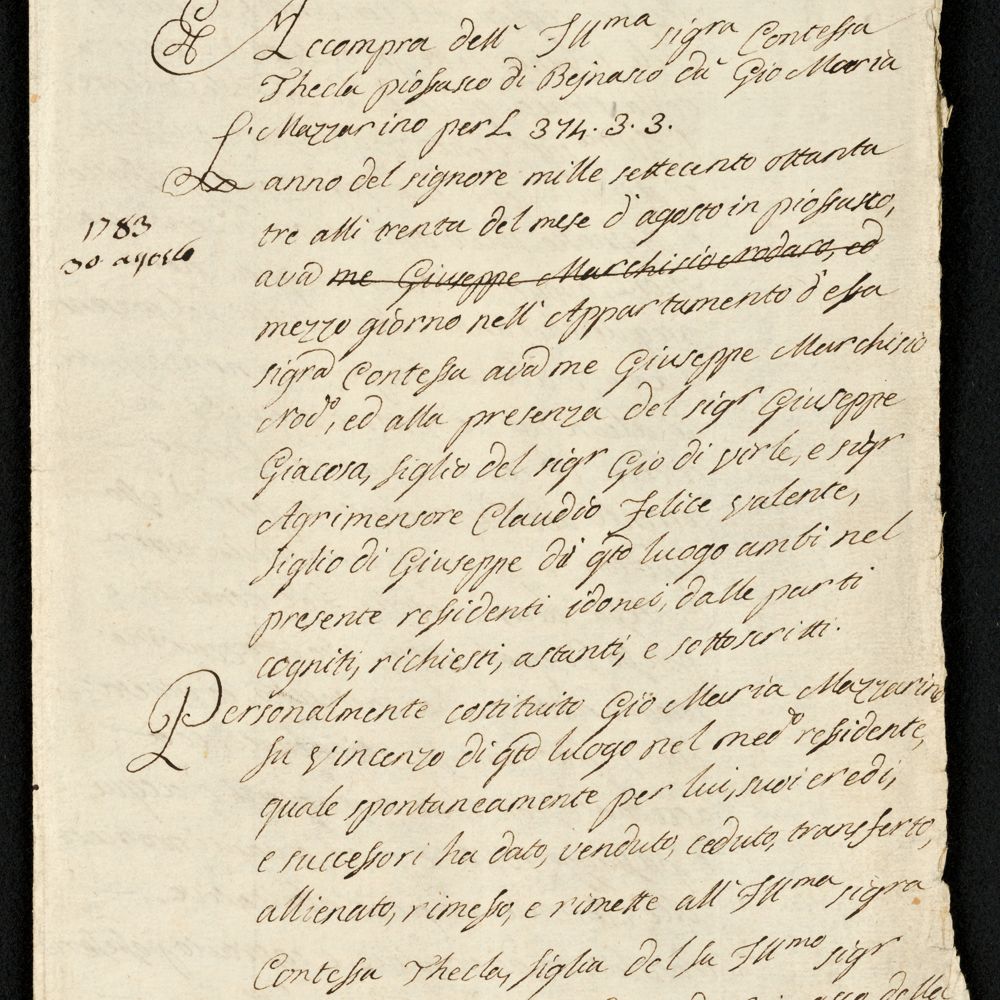 Accompra dell' Ill.ma sig.ra Contessa
Thecla piossasco di Bejnasco da Gio Maria
Mazzarino per L. 374. 3. 3.
L'anno del signore mille settecento ottanta
1783
30 agosto
tre alli trenta del mese d'agosto in piossasco,
avd me Giuseppe Marchisio Nodaro, ed
mezzo giorno nell' Appartamento d'essa
sigra Contessa avd me Giuseppe Marchisio
Nodo, ed alla presenza del sigr Giuseppe
Giacosa, figlio del sigr Gio di virle, e sigr
Agrimensore Claudio Felice valente,
figlio di Giuseppe di qto luogo ambi nel
presente ressidenti idonei, dalle parti
cogniti, richiesti, astanti, e sottoscritti.
Personalmente costituito Gio Maria Mazzarino
fu vincenzo di qto luogo nel medo ressidente,
quale spontaneamente per lui, suoi eredi,
e successori ha dato, venduto, ceduto, transferto,
allienato, rimesso, e rimette all' Ill.ma sigra
Contessa Thecla, figlia del fu Ill.mo sigr
della